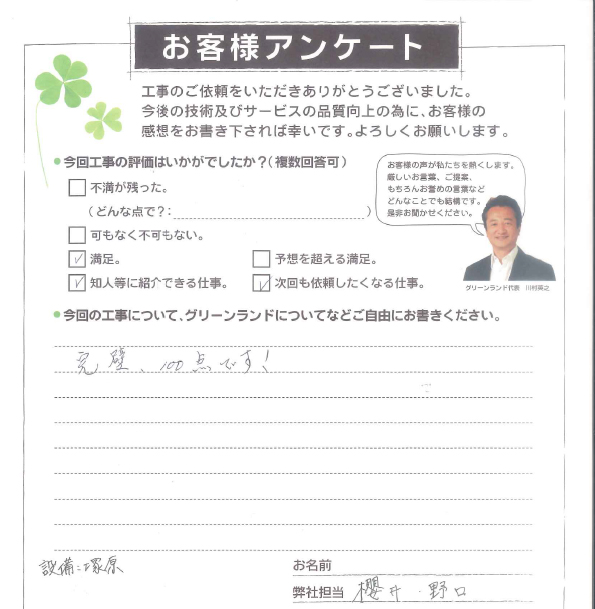 お客様アンケート
工事のご依頼をいただきありがとうございました。
今後の技術及びサービスの品質向上の為に、お客様の
感想をお書き下されば幸いです。よろしくお願いします。
●今回工事の評価はいかがでしたか?(複数回答可)
お客様の声が私たちを熱くします。
厳しいお言葉、ご提案、
もちろんお誉めの言葉など
どんなことでも結構です。
是非お聞かせください。
不満が残った。
(どんな点で?: )
可もなく不可もない。
満足。 予想を超える満足。
知人等に紹介できる仕事。 次回も依頼したくなる仕事。
グリーンランド代表 川村
●今回の工事について、グリーンランドについてなどご自由にお書きください。
完璧、100点です!
設備:塚原
お名前
弊社担当 櫻井・野口